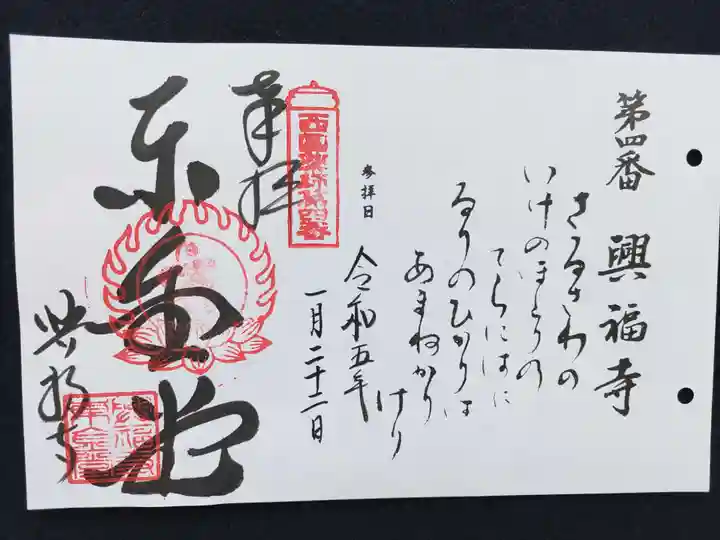 第四番 興福寺
さるさわの
いけのほとりの
てらにはに
るりのひかりは
あまねかり
けり
参拝日
令和五年
一月二十二日
奉拝
東金堂
興福寺